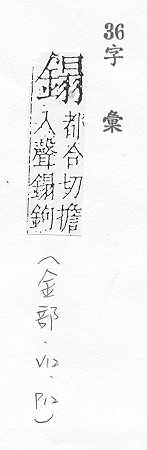 36字彙
鎉
都合切擔
入聲鎉鉤
(金部.V12.P12)